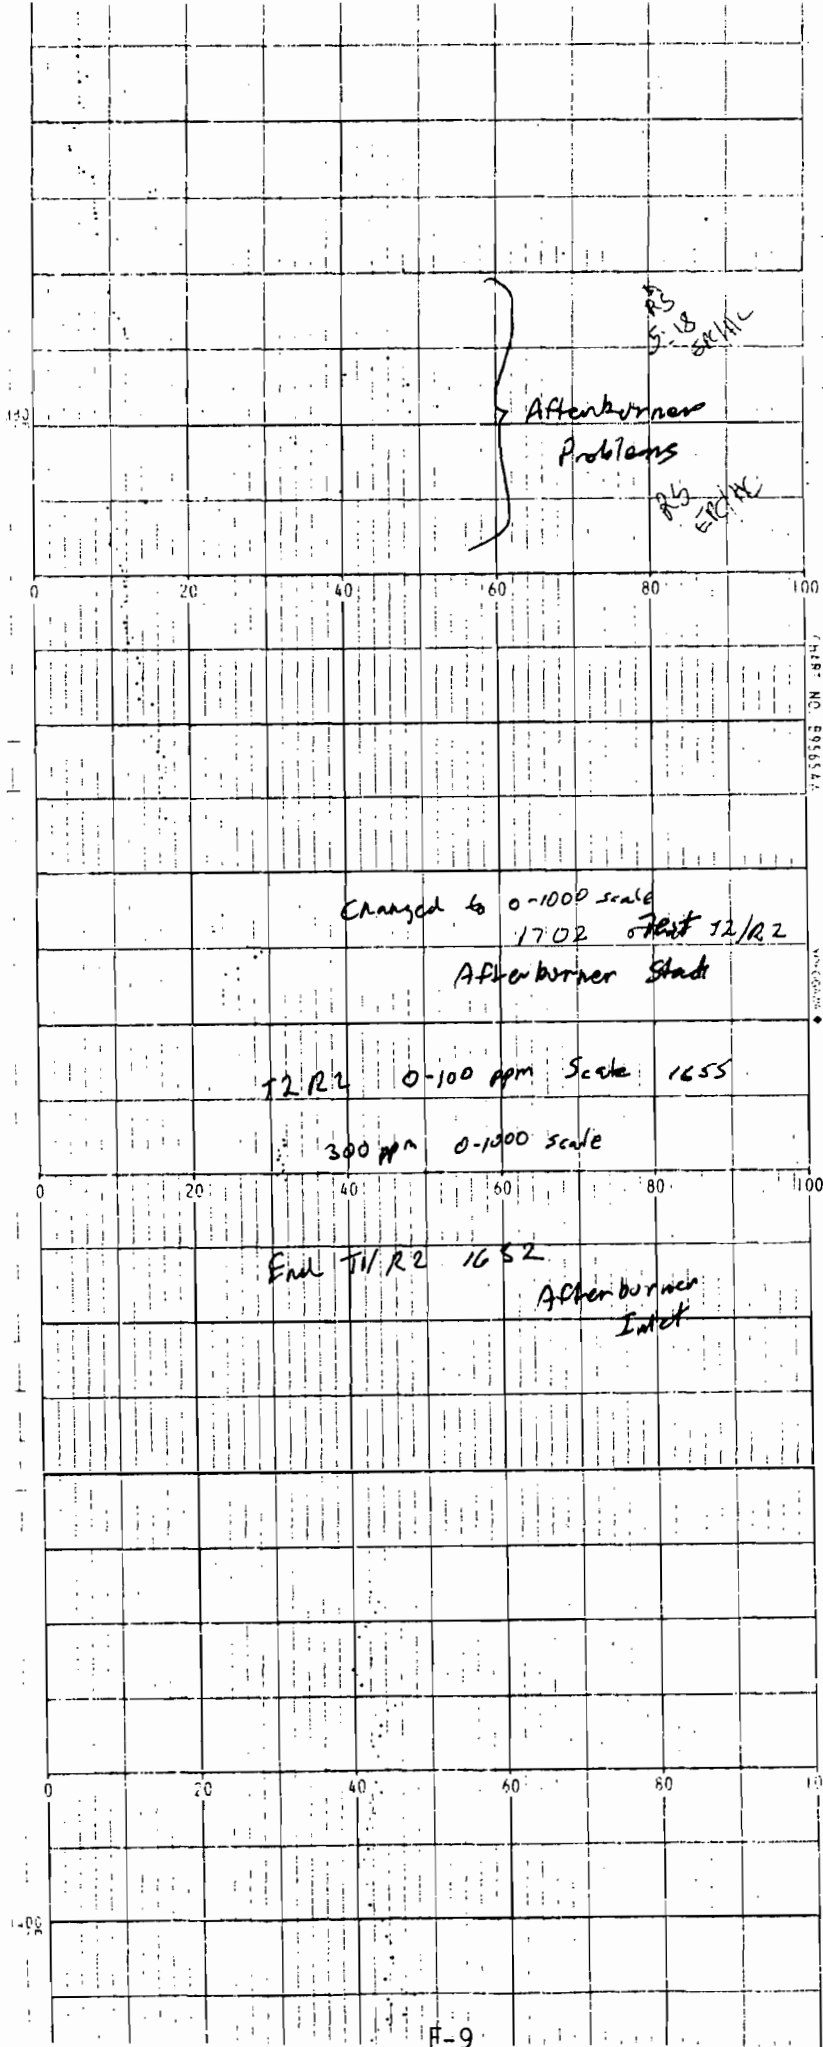 RS
5-18
Afterburner
Problems
RS
EPC/HC
0 20 40 60 80 100
Changed to 0-1000 scale
1702 T2/R2
Afterburner Stack
T2 R2 0-100 ppm Scale 1655
300 ppm 0-1000 scale
0 20 40 60 80 100
End T1/R2 1652
Afterburner
Inlet
0 20 40 60 80 10
F-9